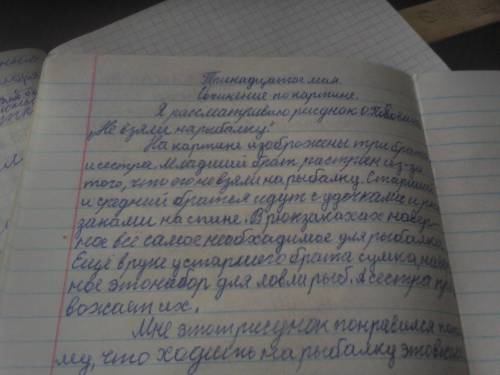 Тринадцатое мая.
Сочинение по картине.
Я рассматриваю рисунок О. Поповича
„Не взяли на рыбалку."
На картине изоброжены три брата
и сестра. Младший брат растроен из-за
того, что его не взяли на рыбалку. Старший
и средний братся идут с удочками и рюк
заками на спине. В рюкзаках навер-
ное всё самое необхадимое для рыбалки.
Ещё в руке у старшего брата сумка, навер
ное это набор для ловли рыб. А сестра про
вожает их.
Мне этот рисунок понравился пото
му, что хадить на рыбалку это